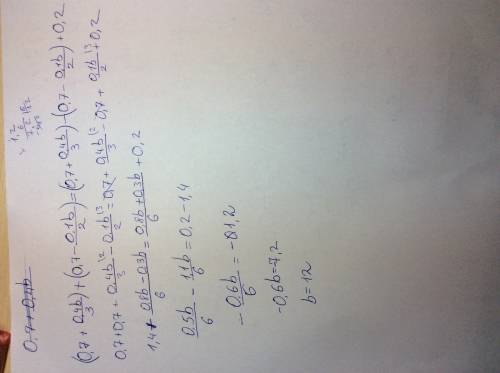 0,7+0,4b
(0,7 + 0,4b/3) + (0,7 - 0,1b/2) = (0,7 + 0,4b/3) - (0,7 - 0,1b/2) + 0,2
0,7 + 0,7 + 0,4b/3 |2 - 0,1b/2 |3 = 0,7 + 0,4b/3 |2 - 0,7 + 0,1b/2 |3 + 0,2
1,4 + 0,8b - 0,3b/6 = 0,8b + 0,3b/6 + 0,2
0,5b/6 - 1,1b/6 = 0,2 - 1,4
- 0,6b/6 = -1,2
-0,6b = 7,2
b = 12